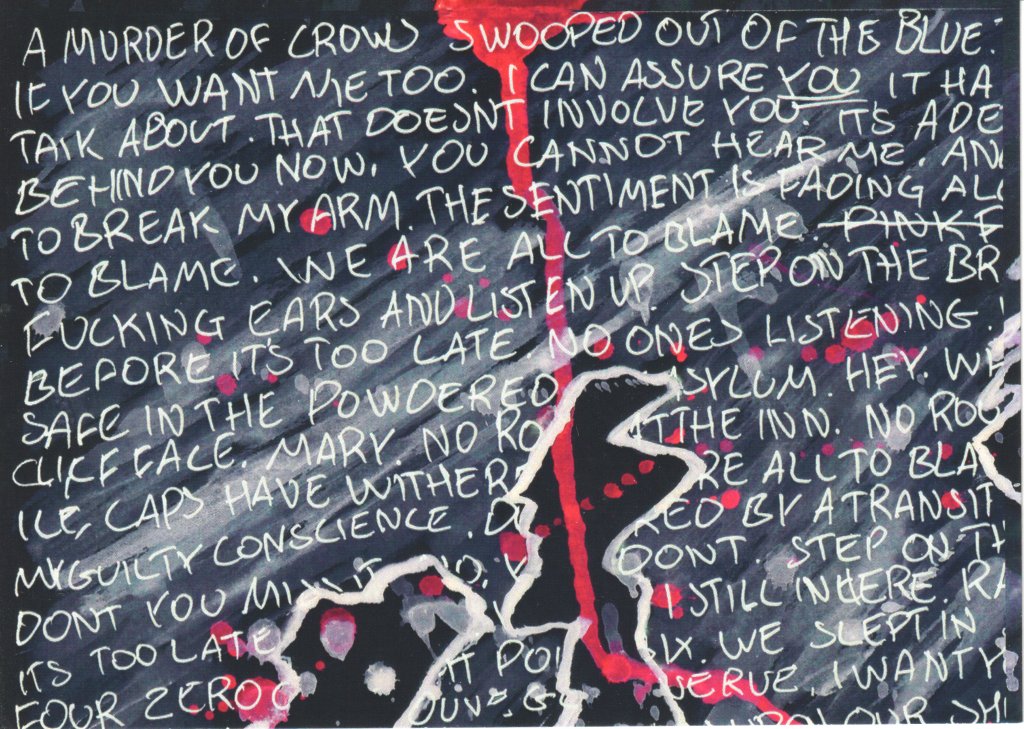 A MURDER OF CROWS SWOOPED OUT OF THE BLUE.
IF YOU WANT ME TOO. I CAN ASSURE YOU IT HA
TALK ABOUT. THAT DOESNT INVOLVE YOU. ITS A DE
BEHIND YOU NOW. YOU CANNOT HEAR ME. AN
TO BREAK MY ARM. THE SENTIMENT IS FADING ALL
TO BLAME. WE ARE ALL TO BLAME PINK F
FUCKING EARS AND LISTEN UP. STEP ON THE BR
BEFORE IT'S TOO LATE. NO ONES LISTENING.
SAFE IN THE POWDERED ASYLUM. HEY. WE
CLIFF FACE. MARY. NO RO AT THE INN. NO ROO
ICE CAPS HAVE WITHERE RE ALL TO BLA
MY GUILTY CONSCIENCE. D KED BY A TRANSIT
DONT YOU DONT STEP ON TH
ITS TOO LATE I STILL IN HERE. RA
FOUR ZERO AT POI SIX. WE SLEPT IN
SERVE. I WANT Y
OUR SH